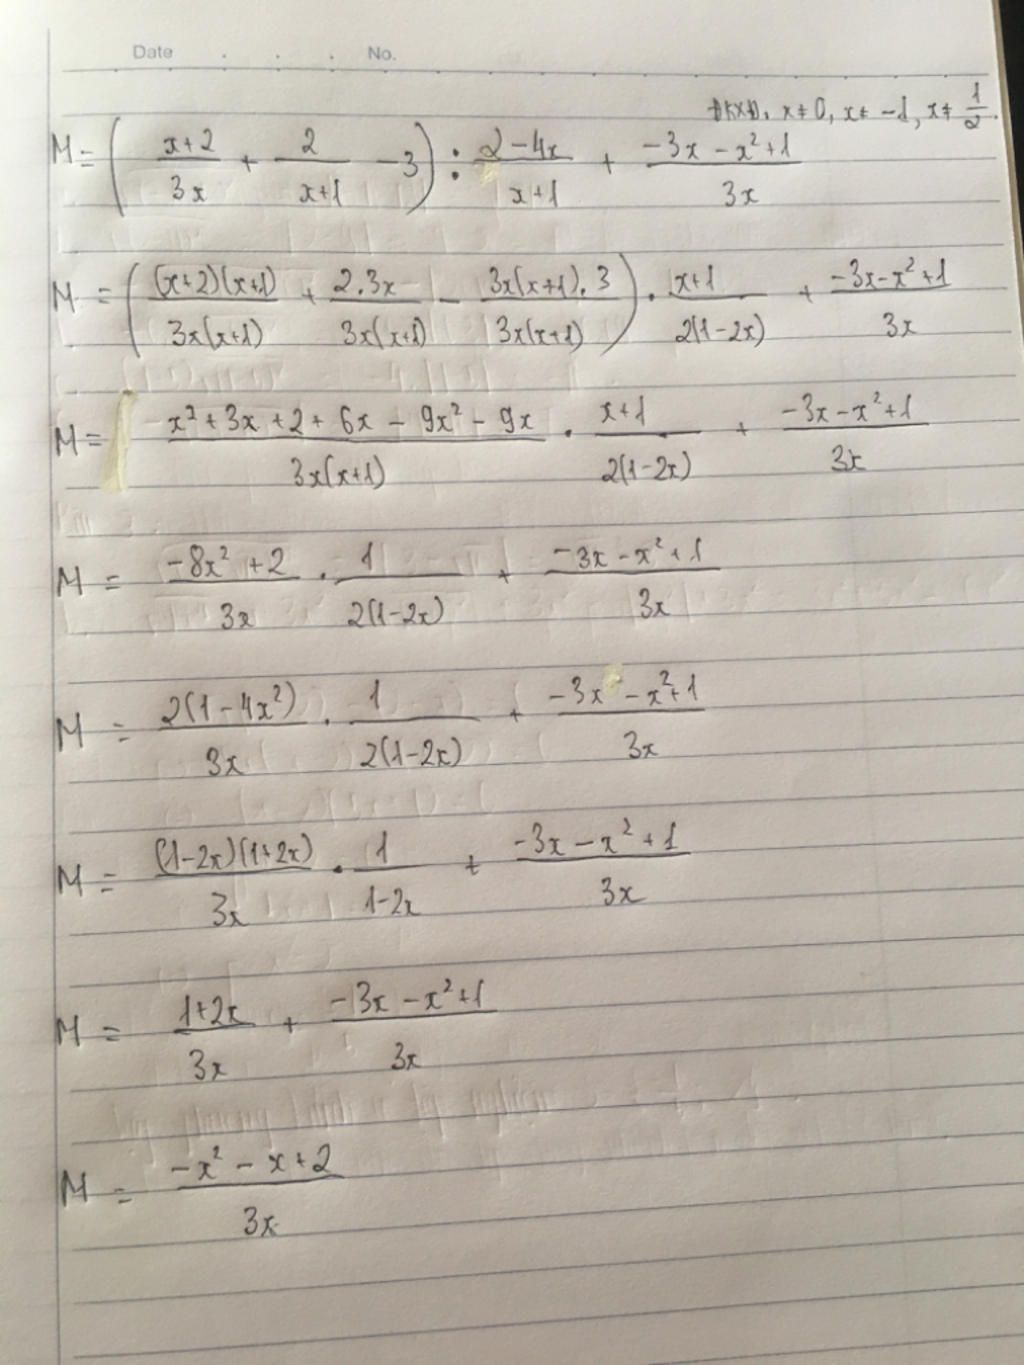 Date . . . No.
ĐKXĐ, x ≠ 0, x ≠ -1, x ≠ 1/2.
M = ( (x+2)/(3x) + 2/(x+1) - 3 ) : (2-4x)/(x+1) + (-3x - x²+1)/(3x)
M = ( ((x+2)(x+1))/(3x(x+1)) + (2.3x)/(3x(x+1)) - (3x(x+1).3)/(3x(x+1)) ) . (x+1)/(2(1-2x)) + (-3x-x²+1)/(3x)
M = (x²+3x+2+6x-9x²-9x)/(3x(x+1)) . (x+1)/(2(1-2x)) + (-3x-x²+1)/(3x)
M = (-8x²+2)/(3x) . 1/(2(1-2x)) + (-3x-x²+1)/(3x)
M = (2(1-4x²))/(3x) . 1/(2(1-2x)) + (-3x -x²+1)/(3x)
M = ((1-2x)(1+2x))/(3x) . 1/(1-2x) + (-3x-x²+1)/(3x)
M = (1+2x)/(3x) + (-3x-x²+1)/(3x)
M = (-x²-x+2)/(3x)